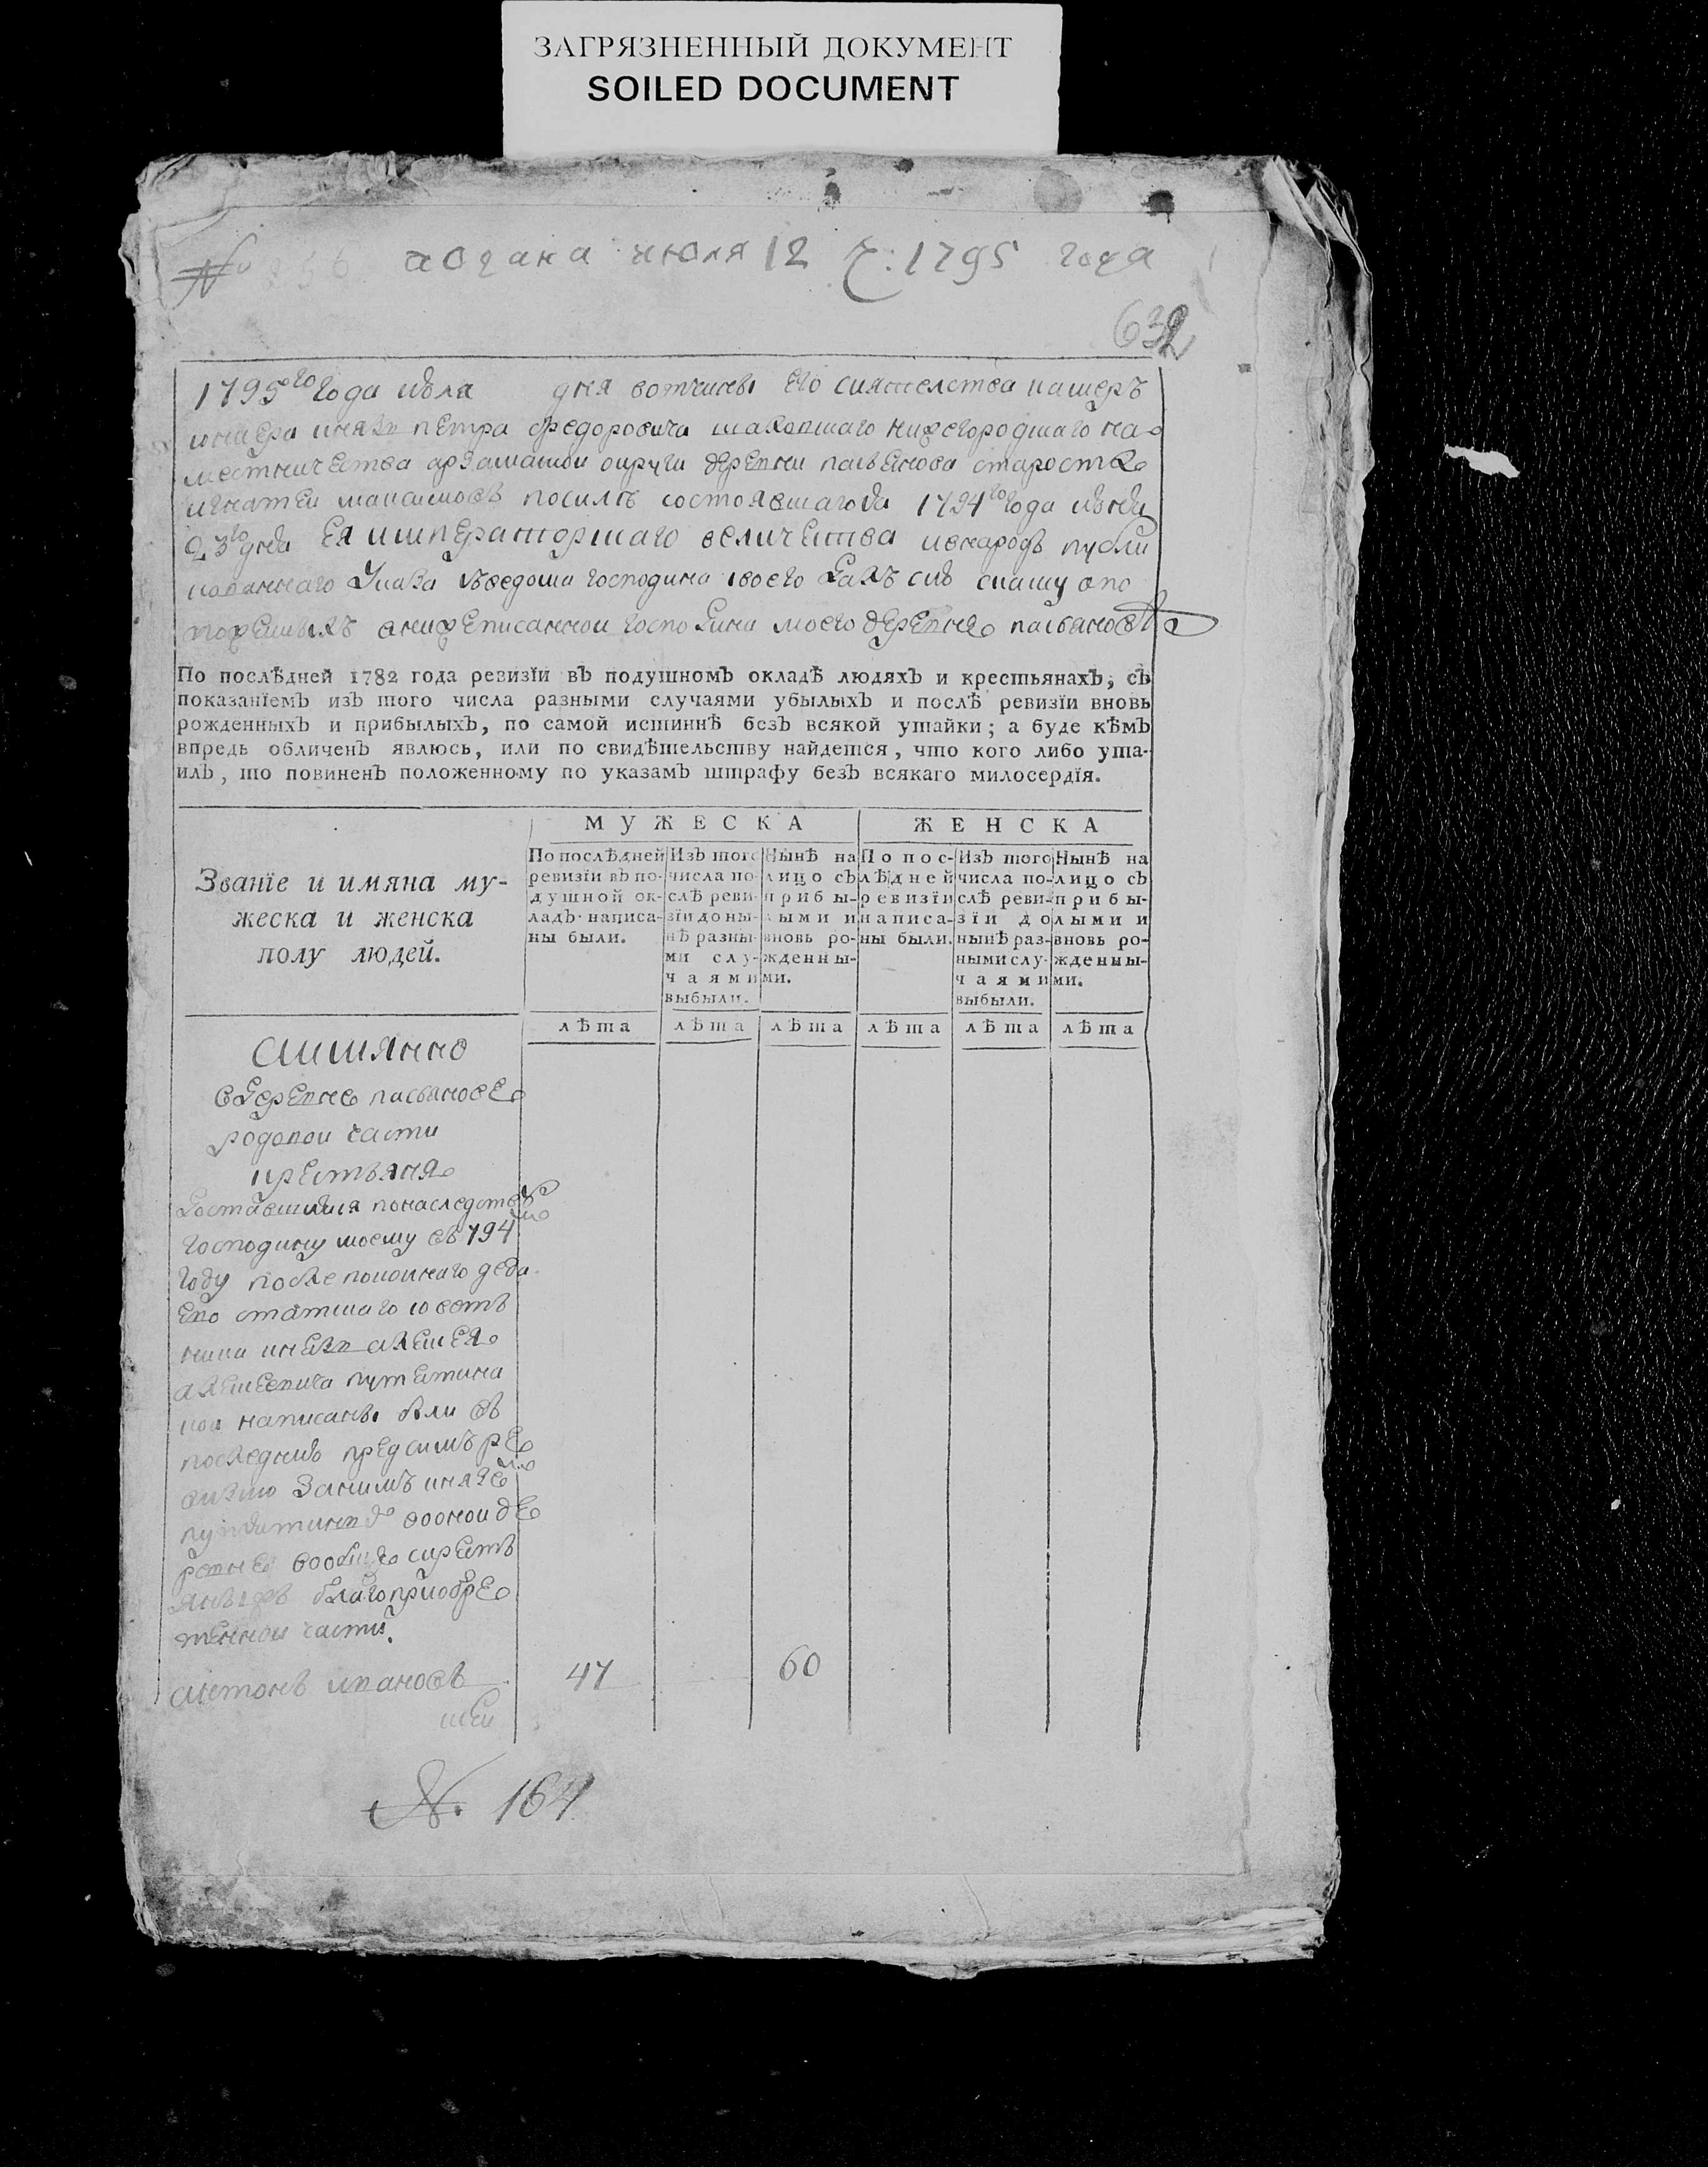 ЗАГРЯЗНЕННЫЙ ДОКУМЕНТ
SOILED DOCUMENT
№ подана июля 12 ч: 1795 года
632
1795го года июля дня вотчины его сиятелства камеръ
юнкера князя петра федоровича нижегородскаго на
местничества арзамаской округи деревни староста
игнатей максимовъ посилѣ состоявшагося 1794го года июня
23го дня Ея императорскаго величества ивнародъ публи
кованнаго Указа съведома господина своего далъ сию скаску опо
казанныхъ внижеписанной господина моего деревне
По послѣдней 1782 года ревизїи въ подушномъ окладѣ людяхъ и крестьянахъ, съ
показанїемъ изъ того числа разными случаями убылыхъ и послѣ ревизїи вновь
рожденныхъ и прибылыхъ, по самой истиннѣ безъ всякой утайки; а буде кѣмъ
впредь обличенъ явлюсь, или по свидѣтельству найдется, что кого либо ута-
илъ, то повиненъ положенному по указамъ штрафу безъ всякаго милосердїя.
МУЖЕСКА
ЖЕНСКА
Званїе и имяна му-
жеска и женска
полу людей.
По послѣдней
ревизїи въ по-
душной ок-
ладъ написа-
ны были.
Изъ того
числа по
слѣ реви-
зїи до ны-
нѣ разны-
ми слу-
чаями
выбыли.
Нынѣ на
лицо съ
прибы-
лыми и
вновь ро-
жденны-
ми.
По пос-
лѣдней
ревизїи
написа-
ны были.
Изъ того
числа по-
слѣ реви-
зїи до
нынѣ раз-
ными слу-
чаями
выбыли.
Нынѣ на
лицо съ
прибы-
лыми и
вновь ро-
жденны-
ми.
лѣта лѣта лѣта лѣта лѣта лѣта
вдеревне
родовой части
крестьяня
доставшияся понаследству
господину моему въ 794м
году после покойнаго деда
ево статскаго советъ
ника князя алексея
алексеевича путятина
кои написаны были въ
последнию предсимъ ре
визию Занимъ княземъ
путятинымъ воной де
ревне вообще скресть
янами благоприобре
тенной части.
антонъ ивановъ 47 60
№. 164